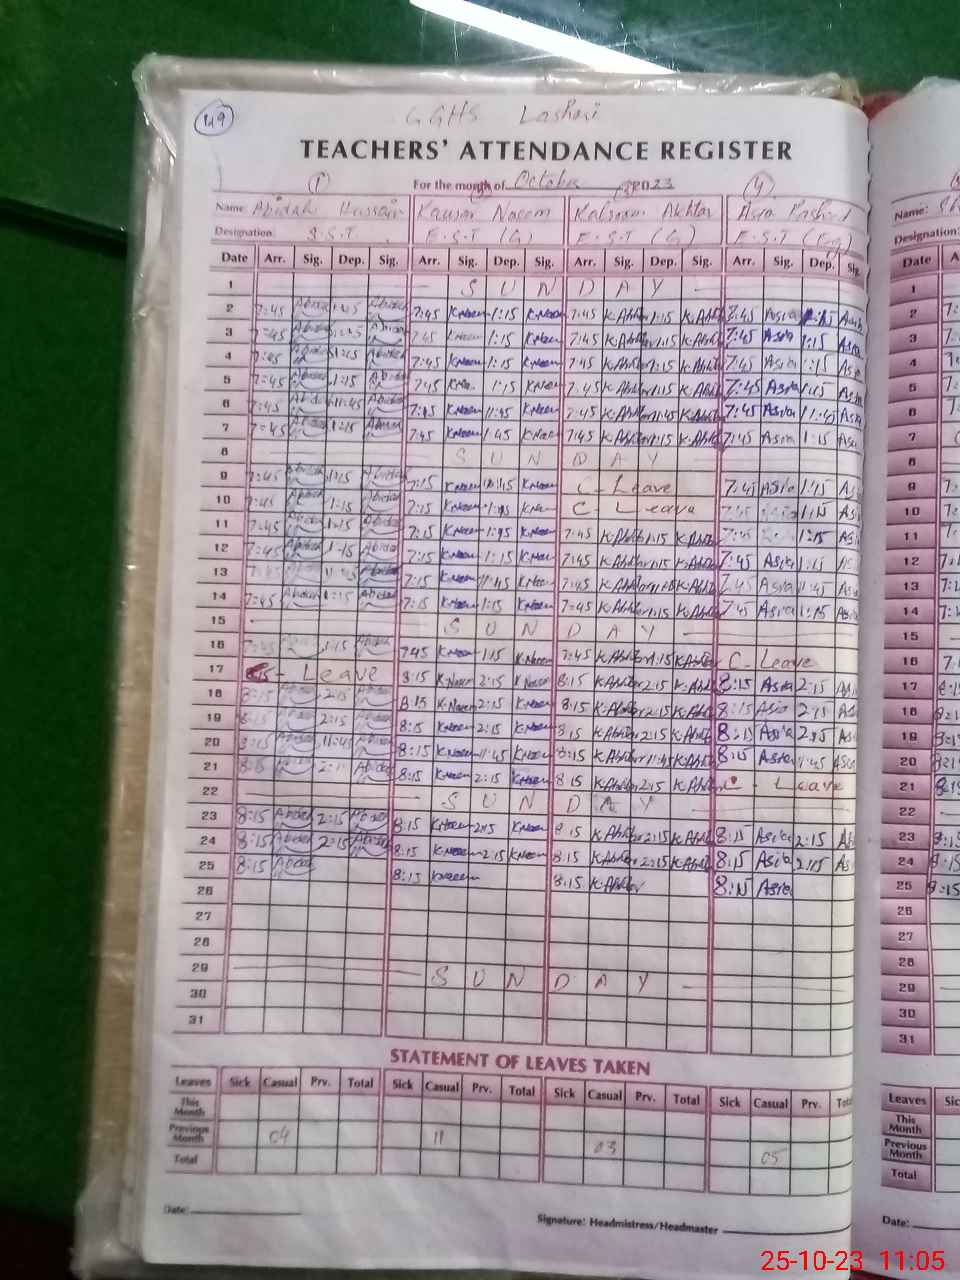 149
GGHS Lashari
TEACHERS' ATTENDANCE REGISTER
For the month of October 2023
Name: Abidah Hussain Kausar Naeem Kalsoom Akhtar Asia Rashed
Designation: S.S.T. E.S.T (G) E.S.T (G) E.S.T (Eng)
Date Arr. Sig. Dep. Sig. Arr. Sig. Dep. Sig. Arr. Sig. Dep. Sig. Arr. Sig. Dep. Sig.
1 SUNDAY
2 7:45 Abidah 1:15 Abidah 7:45 K.Naeem 1:15 K.Naeem 7:45 K.Akhtar 1:15 K.Akhtar 7:45 Asia 1:15 Asia
3 7:45 Abidah 1:15 Abidah 7:45 K.Naeem 1:15 K.Naeem 7:45 K.Akhtar 1:15 K.Akhtar 7:45 Asia 1:15 Asia
4 7:45 Abidah 1:15 Abidah 7:45 K.Naeem 1:15 K.Naeem 7:45 K.Akhtar 1:15 K.Akhtar 7:45 Asia 1:15 Asia
5 7:45 Abidah 1:15 Abidah 7:45 K.Naeem 1:15 K.Naeem 7:45 K.Akhtar 1:15 K.Akhtar 7:45 Asia 1:15 Asia
6 7:45 Abidah 11:45 Abidah 7:45 K.Naeem 11:45 K.Naeem 7:45 K.Akhtar 11:45 K.Akhtar 7:45 Asia 11:45 Asia
7 7:45 Abidah 1:15 Abidah 7:45 K.Naeem 1:45 K.Naeem 7:45 K.Akhtar 1:15 K.Akhtar 7:45 Asia 1:15 Asia
8 SUNDAY
9 7:45 Abidah 1:15 Abidah 7:15 K.Naeem K.Naeem C-Leave 7:45 Asia 1:15 Asia
10 7:45 Abidah 1:15 Abidah 7:15 K.Naeem K.Naeem C-Leave 7:45 1:15 Asia
11 7:45 Abidah 1:15 Abidah 7:15 K.Naeem K.Naeem 7:45 K.Akhtar 1:15 K.Akhtar 7:45 1:15 Asia
12 7:45 Abidah 1:15 Abidah 7:15 K.Naeem 1:15 K.Naeem 7:45 K.Akhtar 1:15 K.Akhtar 7:45 Asia 1:15 Asia
13 7:45 Abidah 11:45 Abidah 7:15 K.Naeem 11:45 K.Naeem 7:45 K.Akhtar 11:45 K.Akhtar 7:45 Asia 11:45 Asia
14 7:45 Abidah 1:15 Abidah 7:15 K.Naeem 1:15 K.Naeem 7:45 K.Akhtar 1:15 K.Akhtar 7:45 Asia 1:15 Asia
15 SUNDAY
16 7:45 Abidah 1:15 Abidah 7:45 K.Naeem 1:15 K.Naeem 7:45 K.Akhtar 1:15 K.Akhtar C-Leave
17 Leave 8:15 K.Naeem 2:15 K.Naeem 8:15 K.Akhtar 2:15 K.Akhtar 8:15 Asia 2:15 Asia
18 8:15 Abidah 2:15 Abidah 8:15 K.Naeem 2:15 K.Naeem 8:15 K.Akhtar 2:15 K.Akhtar 8:15 Asia 2:15 Asia
19 8:15 Abidah 2:15 Abidah 8:15 K.Naeem 2:15 K.Naeem 8:15 K.Akhtar 2:15 K.Akhtar 8:15 Asia 2:15 Asia
20 8:15 Abidah 11:45 Abidah 8:15 K.Naeem 11:45 K.Naeem 8:15 K.Akhtar 11:45 K.Akhtar 8:15 Asia 11:45 Asia
21 8:15 Abidah 2:15 Abidah 8:15 K.Naeem 2:15 K.Naeem 8:15 K.Akhtar 2:15 K.Akhtar C-Leave
22 SUNDAY
23 8:15 Abidah 2:15 Abidah 8:15 K.Naeem 2:15 K.Naeem 8:15 K.Akhtar 2:15 K.Akhtar 8:15 Asia 2:15 Asia
24 8:15 Abidah 2:15 Abidah 8:15 K.Naeem 2:15 K.Naeem 8:15 K.Akhtar 2:15 K.Akhtar 8:15 Asia 2:15 Asia
25 8:15 Abidah 8:15 K.Naeem 8:15 K.Akhtar 8:15 Asia
26
27
28
29 SUNDAY
30
31
STATEMENT OF LEAVES TAKEN
Leaves Sick Casual Prv. Total Sick Casual Prv. Total Sick Casual Prv. Total Sick Casual Prv. Total
This Month
Previous Month 04 11 03 05
Total
Date:
Signature: Headmistress/Headmaster
Name:
Designation:
Date
1
2
3
4
5
6
7
8
9
10
11
12
13
14
15
16
17
18
19
20
21
22
23
24
25
26
27
28
29
30
31
Leaves
This Month
Previous Month
Total
Date:
25-10-23 11:05